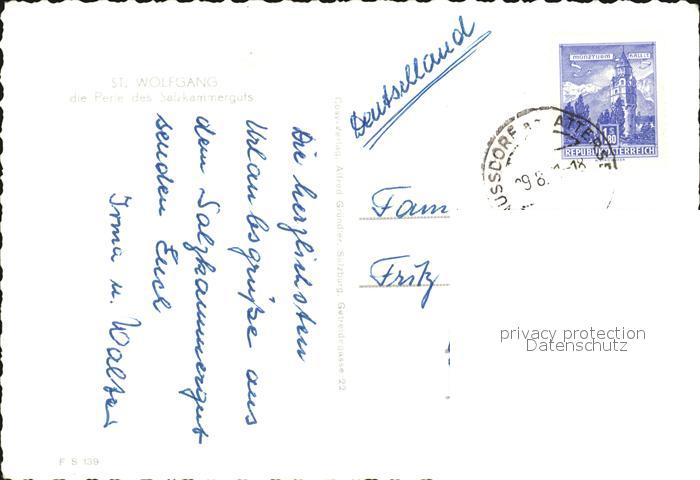 ST. WOLFGANG
die Perle des Salzkammerguts
Die herzlichsten
Urlaubsgrüße aus
dem Salzkammergut
senden Euch
Irma u. Walter
F S 139
Cosy-Verlag Alfred Gründler, Salzburg, Getreidegasse 22
Deutschland
MÜNZTURM HALL I.T.
1.80
REPUBLIK ÖSTERREICH
USSDORF ATTERS
9.8.
-18
Fam
Fritz
privacy protection
Datenschutz